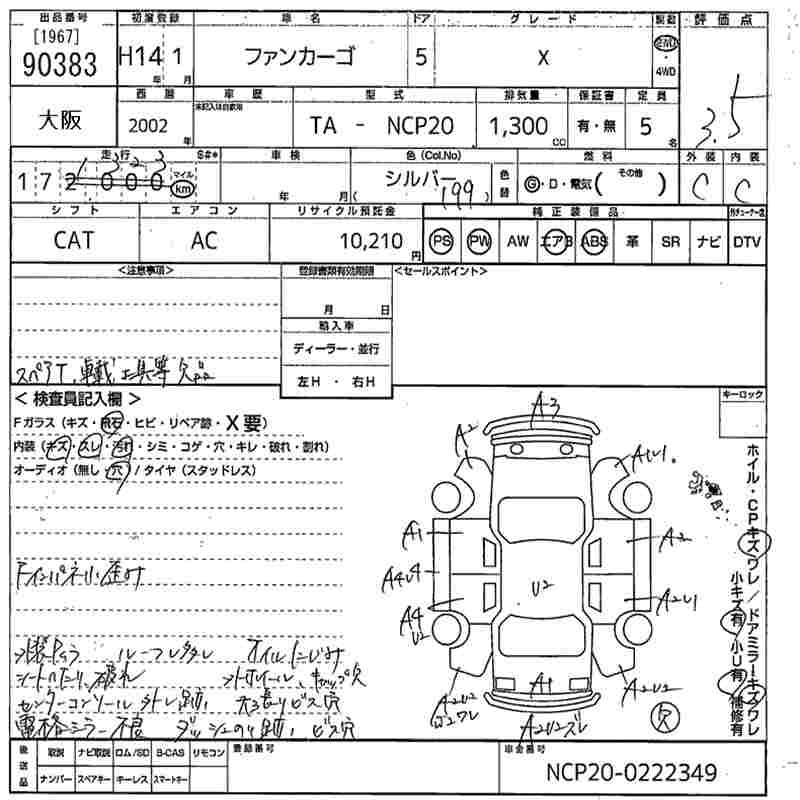 出品番号 初度登録 車名 ドア グレード 駆動 評価点
[1967]
90383 H14 1 ファンカーゴ 5 X 2WD ・ 4WD 3.5
年 月
大阪 西暦 車歴 型式 排気量 保証書 定員
未記入は自家用
2002 年 TA - NCP20 1,300 cc 有・無 5 名
走行 S#* 車検 色 (Col.No) 色替 燃料 外装 内装
1 3 2 3
1 7 2 0 0 0 マイル km 年 月 シルバー (199) G・D・電気 ( その他 ) C C
シフト エアコン リサイクル預託金 純正装備品
CAT AC 10,210 円 PS PW AW エアB ABS 革 SR ナビ DTV
<注意事項> 登録書類有効期限 <セールスポイント>
月 日
輸入車
ディーラー・並行
スペアT、車載工具等欠品 左H ・ 右H
< 検査員記入欄 > キーロック
Fガラス (キズ・飛石・ヒビ・リペア跡・X要)
内装 (キズ・スレ・汚れ・シミ・コゲ・穴・キレ・破れ・割れ)
オーディオ (無し・穴) / タイヤ (スタッドレス)
A3
A2 A1U1
A1 A2
A4U4 U2 A2U1
A4 U2
A1
A2U2 A2U2
A2U2ズレ
欠
ホイル・CPキズワレ / ドアミラーキズワレ
小キズ有 小U有 補修有
Fインパネ小歪み
ルーフレタレ オイルにじみ
シートへたり、破れ
センターコンソール外し跡 ビス穴
電格ミラー不良 ダッシュのり跡、ビス穴
後送品 取説 ナビ取説 ロム/SD B-CAS リモコン 登録番号 車台番号
ナンバー スペアキー キーレス スマートキー NCP20-0222349